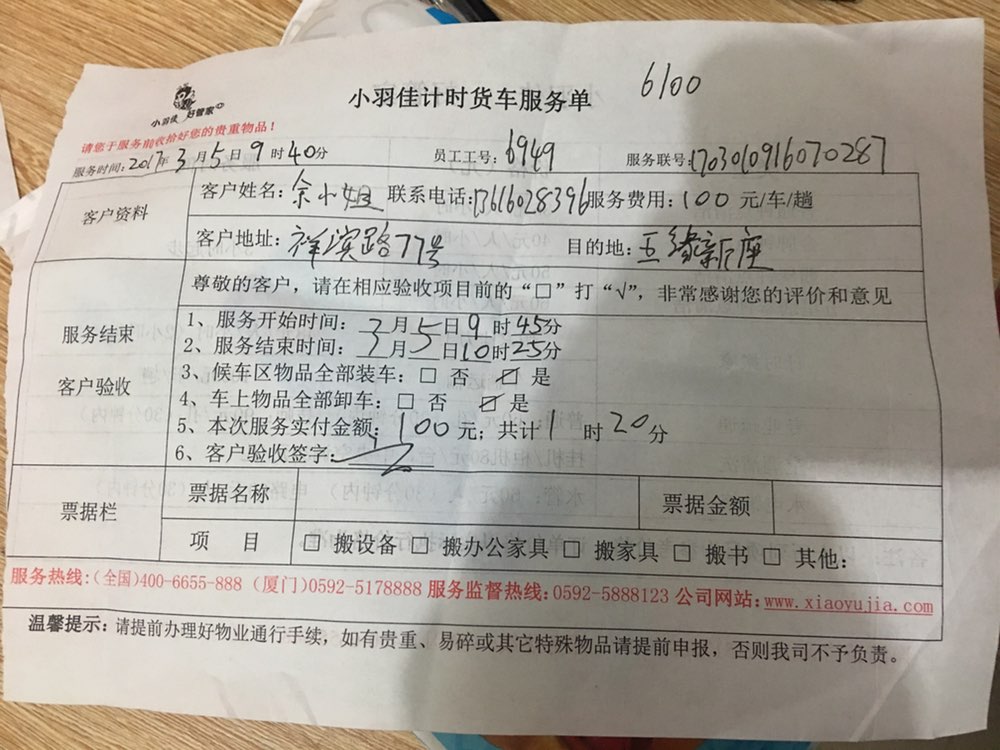 小羽佳计时货车服务单
6100
小羽佳 好管家
请您于服务前收拾好您的贵重物品！
服务时间：2017年3月5日9时40分 员工工号：6949 服务联号：1703010916070287
客户资料
客户姓名：余小姐 联系电话：13616028396 服务费用：100元/车/趟
客户地址：祥滨路77号 目的地：五缘新座
服务结束
客户验收
尊敬的客户，请在相应验收项目前的“□”打“√”，非常感谢您的评价和意见
1、服务开始时间：3月5日9时45分
2、服务结束时间：3月5日10时25分
3、候车区物品全部装车：□ 否 ☑ 是
4、车上物品全部卸车：□ 否 ☑ 是
5、本次服务实付金额：100元；共计1时20分
6、客户验收签字：
票据栏
票据名称 票据金额
项 目 □ 搬设备 □ 搬办公家具 □ 搬家具 □ 搬书 □ 其他：
服务热线：(全国)400-6655-888 (厦门)0592-5178888 服务监督热线：0592-5888123 公司网站：www.xiaoyujia.com
温馨提示：请提前办理好物业通行手续，如有贵重、易碎或其它特殊物品请提前申报，否则我司不予负责。